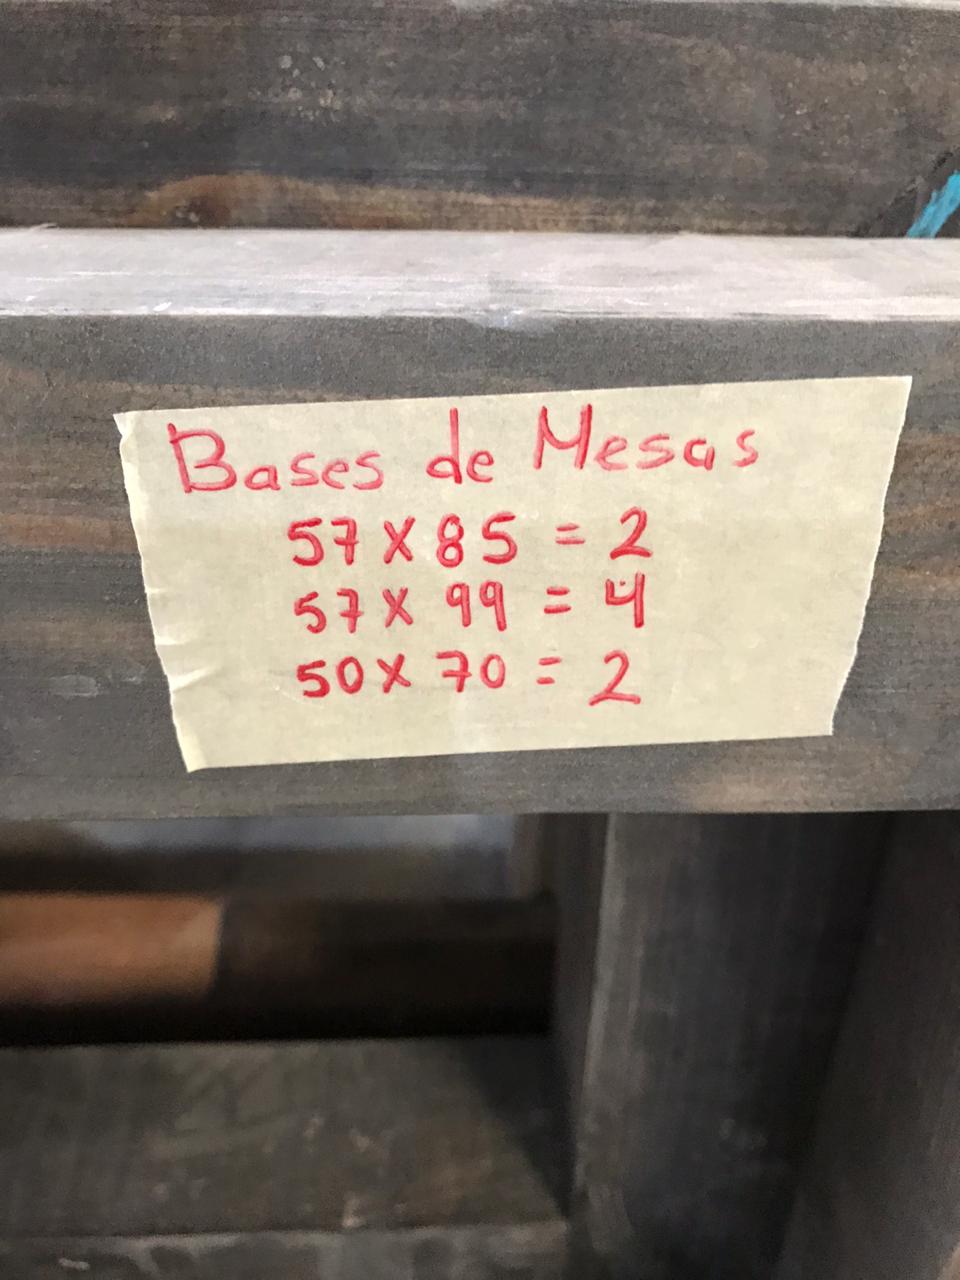 Bases de Mesas
57 X 85 = 2
57 X 99 = 4
50 X 70 = 2